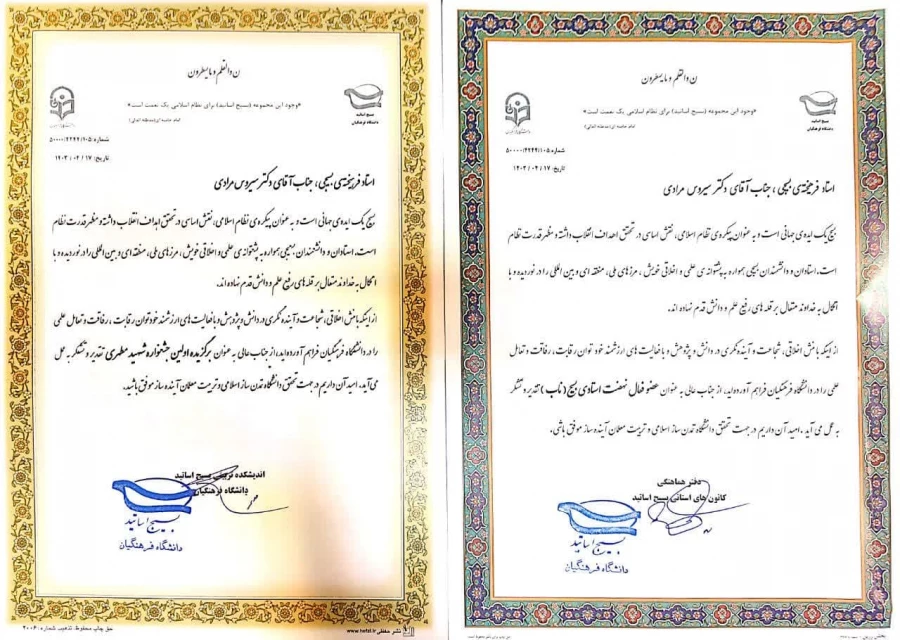 ن والقلم و مایسطرون
«وجود این مجموعه (بسیج اساتید) برای نظام اسلامی یک نعمت است»
امام خامنه ای(مدظله العالی)
بسیج اساتید
دانشگاه فرهنگیان
شماره: ۵۰۰۰۰/۴۲۴۴/۱۰۵
تاریخ: ۱۴۰۳/۰۲/۱۷
استاد فرهیخته‌ی بسیجی، جناب آقای دکتر سیروس مرادی
بسیج یک ایده‌ی جهانی است و به عنوان پیکره‌ی نظام اسلامی، نقش اساسی در تحقق اهداف انقلاب داشته و مظهر قدرت نظام
است. استادان و دانشمندان بسیجی همواره به پشتوانه‌ی علمی و اخلاقی خویش، مرزهای ملی، منطقه ای و بین المللی را در نوردیده و با
اتکال به خداوند متعال بر قله های رفیع علم و دانش قدم نهاده اند.
از اینکه با منش اخلاقی، شجاعت و آینده نگری در دانش و پژوهش و با فعالیت های ارزشمند خود توان رقابت، رفاقت و تعامل علمی
را در دانشگاه فرهنگیان فراهم آورده‌اید، از جناب عالی به عنوان برگزیده اولین جشنواره شهید مطهری تقدیر و تشکر به عمل
می آید. امید آن داریم در جهت تحقق دانشگاه تمدن ساز اسلامی و تربیت معلمان آینده ساز موفق باشید.
اندیشکده تربیتی بسیج اساتید
دانشگاه فرهنگیان
بسیج اساتید
دانشگاه فرهنگیان
حق چاپ محفوظ. تذهیب شماره: ۲۰۰۶
نشر حفظی www.hefzi.ir
ن والقلم و مایسطرون
«وجود این مجموعه (بسیج اساتید) برای نظام اسلامی یک نعمت است»
امام خامنه ای(مدظله العالی)
بسیج اساتید
دانشگاه فرهنگیان
شماره: ۵۰۰۰۰/۴۲۴۴/۱۰۵
تاریخ: ۱۴۰۳/۰۲/۱۷
استاد فرهیخته‌ی بسیجی، جناب آقای دکتر سیروس مرادی
بسیج یک ایده‌ی جهانی است و به عنوان پیکره‌ی نظام اسلامی، نقش اساسی در تحقق اهداف انقلاب داشته و مظهر قدرت نظام
است. استادان و دانشمندان بسیجی همواره به پشتوانه‌ی علمی و اخلاقی خویش، مرزهای ملی، منطقه ای و بین المللی را در نوردیده و با
اتکال به خداوند متعال بر قله های رفیع علم و دانش قدم نهاده اند.
از اینکه با منش اخلاقی، شجاعت و آینده نگری در دانش و پژوهش و با فعالیت های ارزشمند خود توان رقابت، رفاقت و تعامل
علمی را در دانشگاه فرهنگیان فراهم آورده‌اید، از جناب عالی به عنوان عضو فعال نهضت استادی بسیج (ناب) تقدیر و تشکر
به عمل می آید. امید آن داریم در جهت تحقق دانشگاه تمدن ساز اسلامی و تربیت معلمان آینده ساز موفق باشی.
دفتر هماهنگی
کانون های استانی بسیج اساتید
بسیج اساتید
دانشگاه فرهنگیان